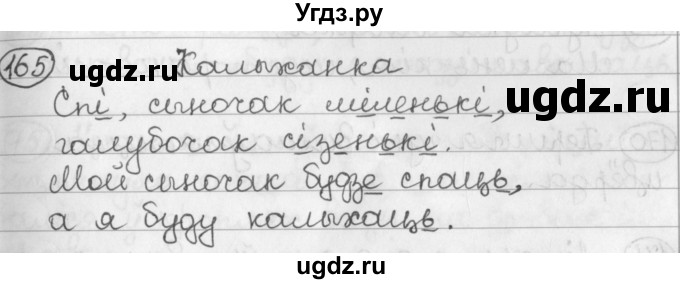 Угдз.ру
165
Калыханка
ugdz.ru
ugdz.ru
Спі, сыночак міленькі,
ugdz.ru
галубочак сізенькі.
Мой сыночак будзе спаць,
а я буду калыхаць.
ugdz.ru
ugdz.ru